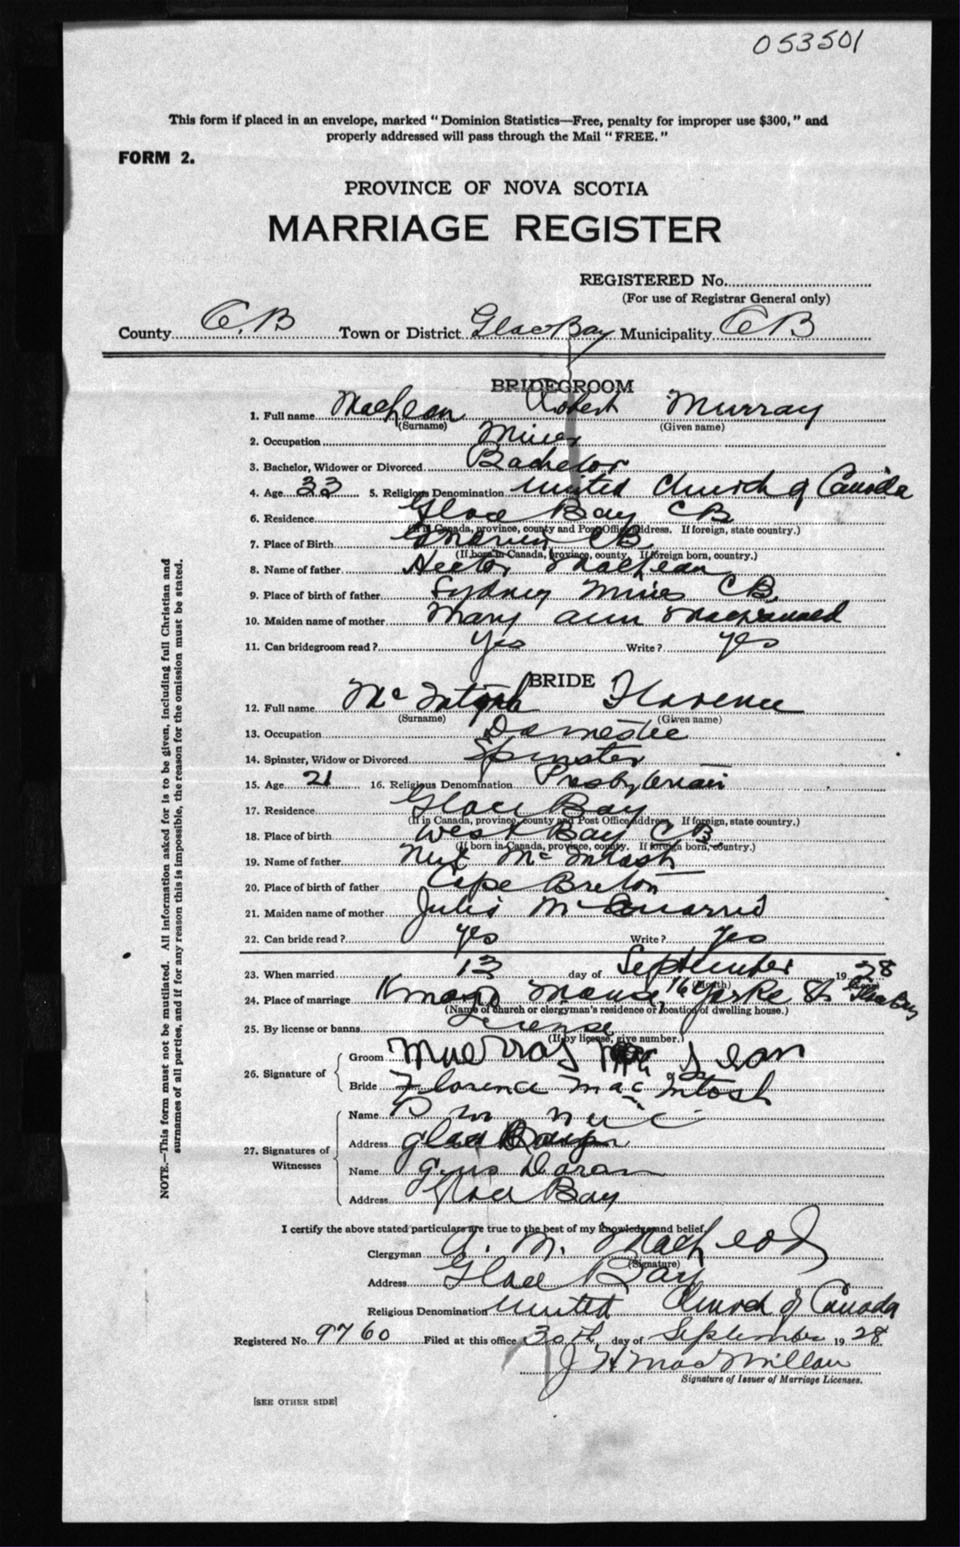 053501
This form if placed in an envelope, marked "Dominion Statistics—Free, penalty for improper use $300," and
properly addressed will pass through the Mail "FREE."
FORM 2.
PROVINCE OF NOVA SCOTIA
MARRIAGE REGISTER
REGISTERED No.
(For use of Registrar General only)
County C.B Town or District Glace Bay Municipality CB
BRIDEGROOM
1. Full name MacLean Robert Murray
(Surname) (Given name)
2. Occupation Miner
3. Bachelor, Widower or Divorced Bachelor
4. Age 33 5. Religious Denomination United Church of Canada
6. Residence Glace Bay CB
(If in Canada, province, county and Post Office Address. If foreign, state country.)
7. Place of Birth CB
(If born in Canada, province, county. If foreign born, country.)
8. Name of father Hector MacLean
9. Place of birth of father Sydney Mines CB
10. Maiden name of mother Mary Ann MacDonald
11. Can bridegroom read? Yes Write? Yes
BRIDE
12. Full name McIntosh Florence
(Surname) (Given name)
13. Occupation Domestic
14. Spinster, Widow or Divorced Spinster
15. Age 21 16. Religious Denomination Presbyterian
17. Residence Glace Bay
(If in Canada, province, county and Post Office Address. If foreign, state country.)
18. Place of birth West Bay CB
(If born in Canada, province, county. If foreign born, country.)
19. Name of father McIntosh
20. Place of birth of father Cape Breton
21. Maiden name of mother McQuarrie
22. Can bride read? Yes Write? Yes
23. When married 13 day of September 1928
(Month)
24. Place of marriage Knox Manse, 16 Yorke St Glace Bay
(Name of church or clergyman's residence or location of dwelling house.)
25. By license or banns License
(If by license, give number.)
26. Signature of
Groom Murray MacLean
Bride Florence MacIntosh
27. Signatures of Witnesses
Name
Address Glace Bay
Name Doran
Address Glace Bay
I certify the above stated particulars are true to the best of my knowledge and belief.
Clergyman A. M. MacLeod
(Signature)
Address Glace Bay
Religious Denomination United Church of Canada
Registered No. 9760 Filed at this office 30th day of September 1928
J H MacMillan
Signature of Issuer of Marriage Licenses.
[SEE OTHER SIDE]
NOTE.—This form must not be mutilated. All information asked for is to be given, including full Christian and
surnames of all parties, and if for any reason this is impossible, the reason for the omission must be stated.